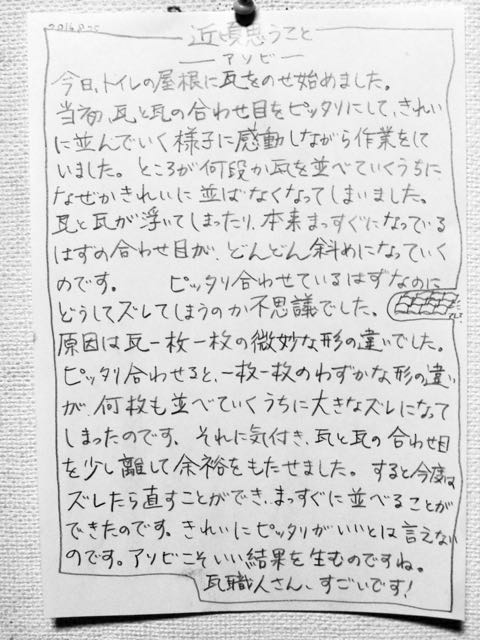 近頃思うこと
アソビ
今日、トイレの屋根に瓦をのせ始めました。
当初、瓦と瓦の合わせ目をピッタリにして、きれい
に並んでいく様子に感動しながら作業をして
いました。ところが何段か瓦を並べていくうちに
なぜかきれいに並ばなくなってしまいました。
瓦と瓦が浮いてしまったり、本来まっすぐになっている
はずの合わせ目が、どんどん斜めになっていく
のです。 ピッタリ合わせているはずなのに
どうしてズレてしまうのか不思議でした。
原因は瓦一枚一枚の微妙な形の違いでした。
ピッタリ合わせると、一枚一枚のわずかな形の違い
が、何枚も並べていくうちに大きなズレになって
しまったのです。それに気付き、瓦と瓦の合わせ目
を少し離して余裕をもたせました。すると今度は
ズレたら直すことができ、まっすぐに並べることが
できたのです。きれいにピッタリがいいとは言えない
のです。アソビこそいい結果を生むのですね。
瓦職人さん、すごいです！